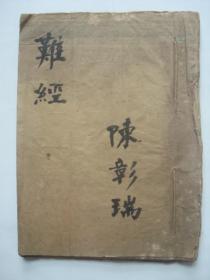 難經
陳彰瑞